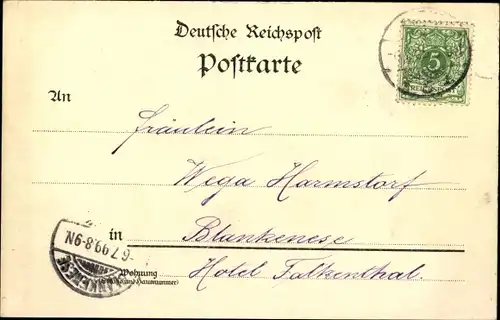 Deutsche Reichspost
Postkarte
5
An
Fräulein
Wega Harmstorf
in Blankenese
Wohnung
(Straße und Hausnummer)
Hotel Falkenthal.
BLANKENESE
6.7.99.8-9N.